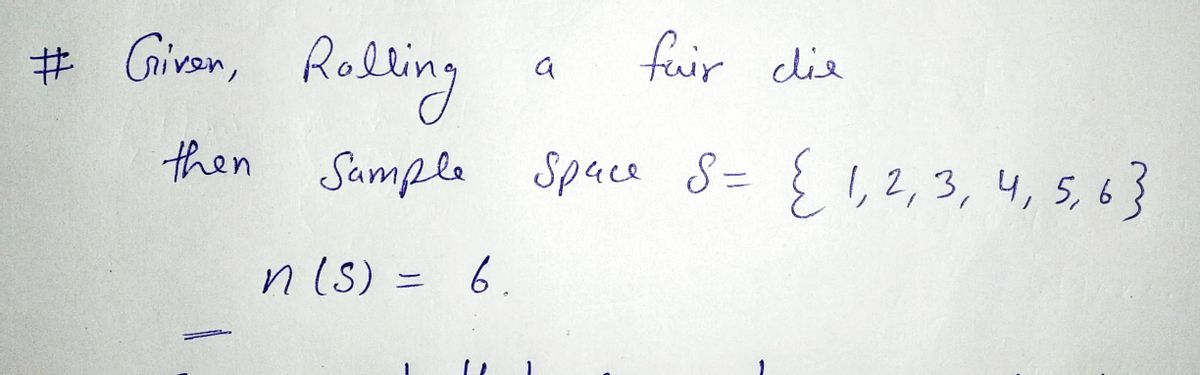 # Given, Rolling a fair die
then Sample Space S = { 1, 2, 3, 4, 5, 6 }
n (S) = 6.